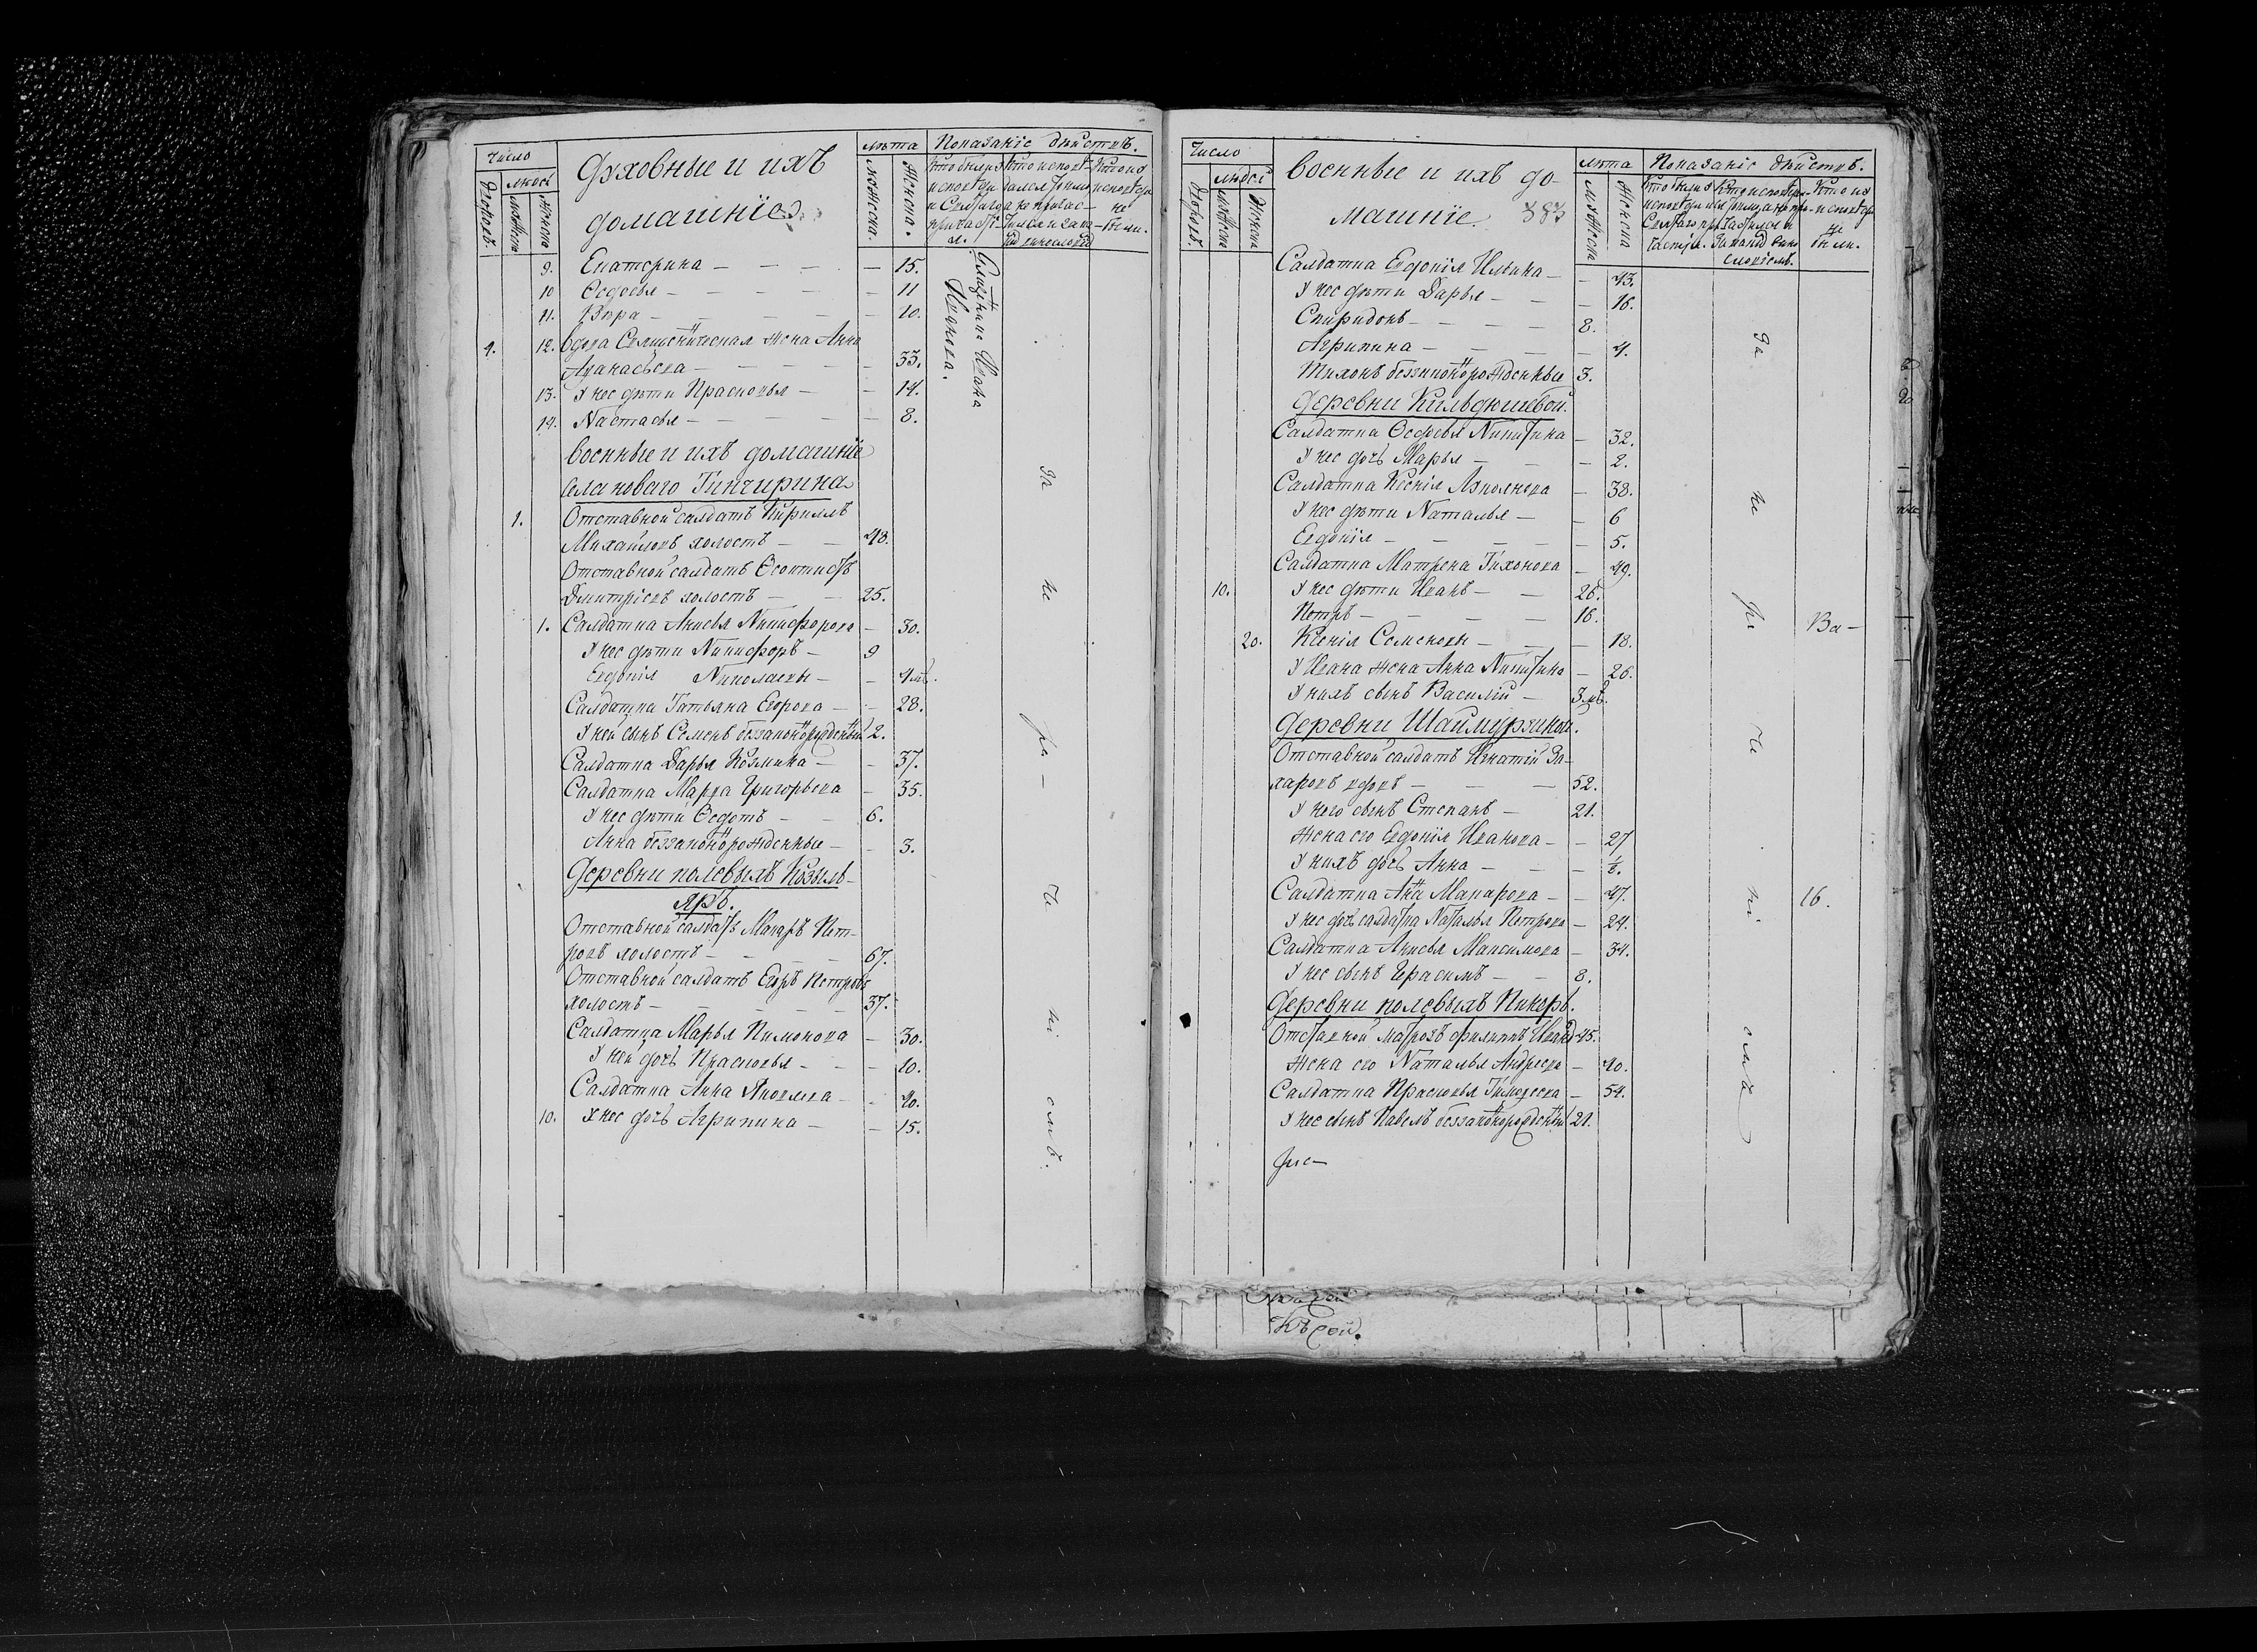 Число
людей
Дворовъ.
Мужеска
Женска
Духовныя и ихъ
домашніе
лѣта
Мужеска.
Женска.
Показаніе дѣйствъ.
9. Екатерина — — — — 15.
10 Ѳедосья — — — — 11
11. Вѣра — — — — 10.
4. 12. Вдова Священническая жена Анна
Аѳанасьева — — — — 33.
13. У нес дѣти Прасковья — — 14.
14. Настасья — — — — 8.
Слушкина Ивана
Иванова.
Военные и ихъ домашніе
села новаго Тинчурина
1. Отставной салдатъ Кириллъ
Михайловъ холостъ — — 48.
Отставной салдатъ Ѳеоктистъ
Дмитріевъ холостъ — — 25.
1. Салдатка Анисья Никифорова — 30.
У нес дѣти Никифоръ — 9
Евдокія Николаевы — — 4 мѣ.
Салдатка Татьяна Егорова — — 28.
У ней сынъ Семенъ беззаконорожденный 2.
Салдатка Дарья Козмина — — 37.
Салдатка Марѳа Григорьева — 35.
У нес дѣти Ѳедотъ — — 6.
Анна беззаконнорожденные — — 3.
Деревни полевыхъ Козыль-
яръ.
Отставной салдатъ Макаръ Пет-
ровъ холостъ — — — — 67.
Отставной салдатъ Егоръ Петровъ
холостъ — — — — 37.
Салдатка Марья Пимонова — 30.
У ней дочь Прасковья — — — 10.
Салдатка Анна Яковлева — — 40.
10. У нес дочь Агрипина — — 15.
За не ра- че ні емъ.
Число
людей
Дворовъ.
Мужеска
Женска
Военные и ихъ до-
машніе. 383
лѣта
Мужеска
Женска
Показаніе дѣйствъ.
Салдатка Евдокія Ильина — — 43.
У нес дѣти Дарья — — — 16.
Спиридонъ — — — — 8.
Агрипина — — — — 4.
Тихонъ беззаконорожденные 3.
Деревни Кильдюшевой.
Салдатка Ѳедосья Никитина — 32.
У нес дочь Марья — — — 2.
Салдатка Ксенія Лукоянова — 38.
У нес дѣти Наталья — — 6
Евдокія — — — — 5.
Салдатка Матрена Тихонова — 49.
10. У нес дѣти Иванъ — — 26.
Петръ — — — — 16.
20. Ксенія Семеновы — — — 18.
У Ивана жена Анна Никитина — 26.
У нихъ сынъ Василій — 3 мѣ.
Деревни Шаймурзиной.
Отставной салдатъ Игнатій За-
харовъ вдовъ — — — 52.
У него сынъ Степанъ — 21.
Жена его Евдокія Иванова — — 27
У нихъ дочь Анна — — — ½.
Салдатка Анна Макарова — — 47.
У нес дочь салдатка Наталья Петрова — 24.
Салдатка Анисья Максимова — 34.
У нес сынъ Герасимъ — — 8.
Деревни полевыхъ Пинеръ.
Отставной матрозъ Филиппъ Ивановъ 45.
Жена его Наталья Андреева — 40.
Салдатка Прасковья Тимоѳеева — 54.
У нес сынъ Павелъ беззаконорожденный 21.
За не ра че ні емъ
Ва-
16.